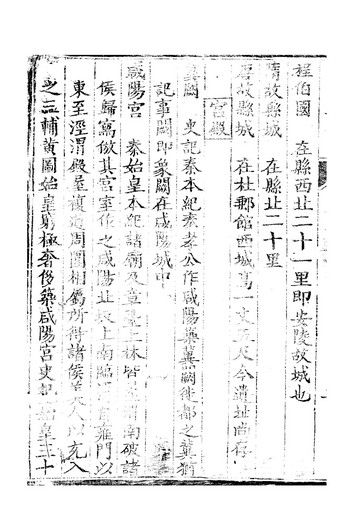 程伯國 在縣西北二十一里即安陵故城也
隋故縣城 在縣北二十里
唐故縣城 在杜郵館西城高一丈五尺今遺址尚存
宮殿
冀闕 史記秦本紀秦孝公作咸陽築冀闕徙都之冀猶
記事闕即象闕在咸陽城中
咸陽宮 秦始皇本紀諸廟及章臺上林皆 渭南破諸
侯歸寫倣其宮室作之咸陽北坂上南臨 自雍門以
東至涇渭殿屋複道周閣相屬所得諸侯美人以充入
之三輔黃圖始皇窮極奢侈築咸陽宮史記 始皇三十